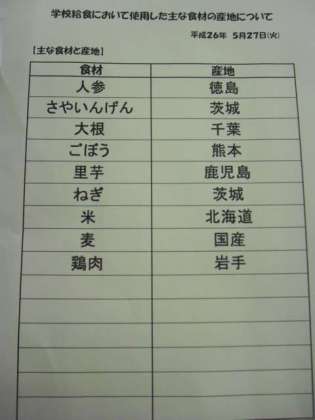 学校給食において使用した主な食材の産地について
平成26年 5月27日(火)
[主な食材と産地]
食材 産地
人参 徳島
さやいんげん 茨城
大根 千葉
ごぼう 熊本
里芋 鹿児島
ねぎ 茨城
米 北海道
麦 国産
鶏肉 岩手